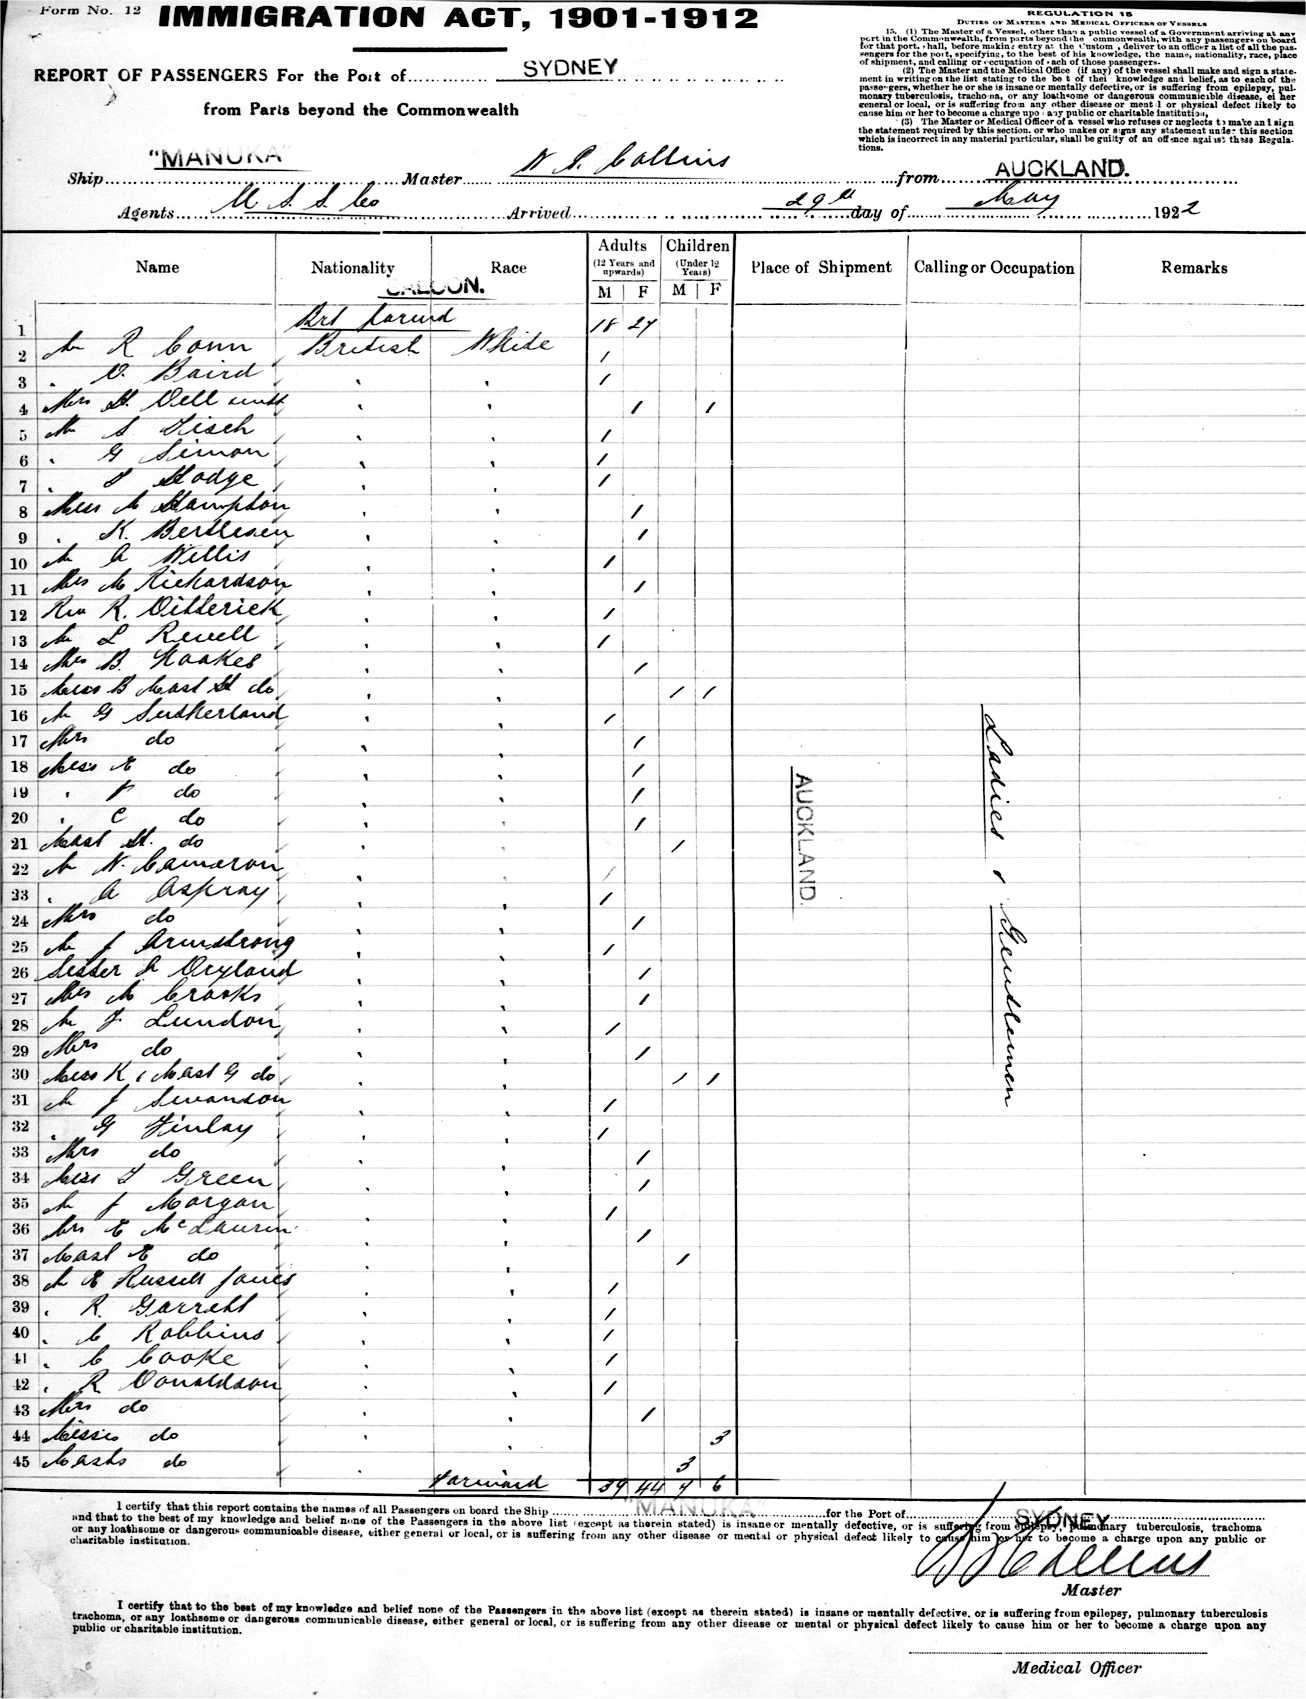 Form No. 12
IMMIGRATION ACT, 1901-1912
REPORT OF PASSENGERS For the Port of SYDNEY
from Parts beyond the Commonwealth
REGULATION 15
DUTIES OF MASTERS AND MEDICAL OFFICERS OF VESSELS
15. (1) The Master of a Vessel, other than a public vessel of a Government arriving at any
port in the Commonwealth, from parts beyond the ommonwealth, with any passengers on board
for that port, shall, before making entry at the Custom, deliver to an officer a list of all the pas-
sengers for the port, specifying, to the best of his knowledge, the name, nationality, race, place
of shipment, and calling or occupation of each of those passengers.
(2) The Master and the Medical Office (if any) of the vessel shall make and sign a state-
ment in writing on the list stating to the be t of thei knowledge and belief, as to each of the
passengers, whether he or she is insane or mentally defective, or is suffering from epilepsy, pul-
monary tuberculosis, trachoma, or any loathsome or dangerous communicable disease, ei her
general or local, or is suffering from any other disease or ment l or physical defect likely to
cause him or her to become a charge upo any public or charitable institution,
(3) The Master or Medical Officer of a vessel who refuses or neglects to make and sign
the statement required by this section, or who makes or signs any statement under this section
which is incorrect in any material particular, shall be guilty of an offence against these Regula-
tions.
Ship "MANUKA" Master Collins from AUCKLAND.
Agents U S S Co Arrived 29th day of May 1922
Name Nationality Race Adults (12 Years and upwards) M F Children (Under 12 Years) M F Place of Shipment Calling or Occupation Remarks
SALOON.
1 Brt forwd 18 27
2 Mr R Conn British White 1
3 " V. Baird " " 1
4 Mrs H. Dell " " 1 1
5 Mr S Fisch " " 1
6 " G Simon " " 1
7 " Hodge " " 1
8 Miss M Hampton " " 1
9 " K. Bertlesen " " 1
10 Mr A Willis " " 1
11 Mrs M Richardson " " 1
12 Rev R. Ditterick " " 1
13 Mr L Revell " " 1
14 Mrs B. Noakes " " 1
15 Miss B Mast H do " " 1 1
16 Mr G Sutherland " " 1
17 Mrs do " " 1
18 Miss E do " " 1
19 " do " " 1
20 " C do " " 1
21 Mast H. do " " 1
22 Mr N. Cameron " " 1
23 " A Aspray " " 1
24 Mrs do " " 1
25 Mr J Armstrong " " 1
26 Sister A Dryland " " 1
27 Mrs M Crooks " " 1
28 Mr F Lundon " " 1
29 Mrs do " " 1
30 Miss K & Mast G do " " 1 1
31 Mr J Swanson " " 1
32 " G Finlay " " 1
33 Mrs do " " 1
34 Miss Green " " 1
35 Mr J Morgan " " 1
36 Mrs E McLaurin " " 1
37 Mast E do " " 1
38 Mr E Russell Jones " " 1
39 " R. Garrett " " 1
40 " C Robbins " " 1
41 " C Cooke " " 1
42 " R Donaldson " " 1
43 Mrs do " " 1
44 Misses do " " 3
45 Masts do " " 3
AUCKLAND.
Ladies & Gentlemen
Forward 39 44 7 6
I certify that this report contains the names of all Passengers on board the Ship "MANUKA" for the Port of SYDNEY
and that to the best of my knowledge and belief none of the Passengers in the above list (except as therein stated) is insane or mentally defective, or is suffering from epilepsy, pulmonary tuberculosis, trachoma
or any loathsome or dangerous communicable disease, either general or local, or is suffering from any other disease or mental or physical defect likely to cause him or her to become a charge upon any public or
charitable institution.
Collins
Master
I certify that to the best of my knowledge and belief none of the Passengers in the above list (except as therein stated) is insane or mentally defective, or is suffering from epilepsy, pulmonary tuberculosis
trachoma, or any loathsome or dangerous communicable disease, either general or local, or is suffering from any other disease or mental or physical defect likely to cause him or her to become a charge upon any
public or charitable institution.
Medical Officer